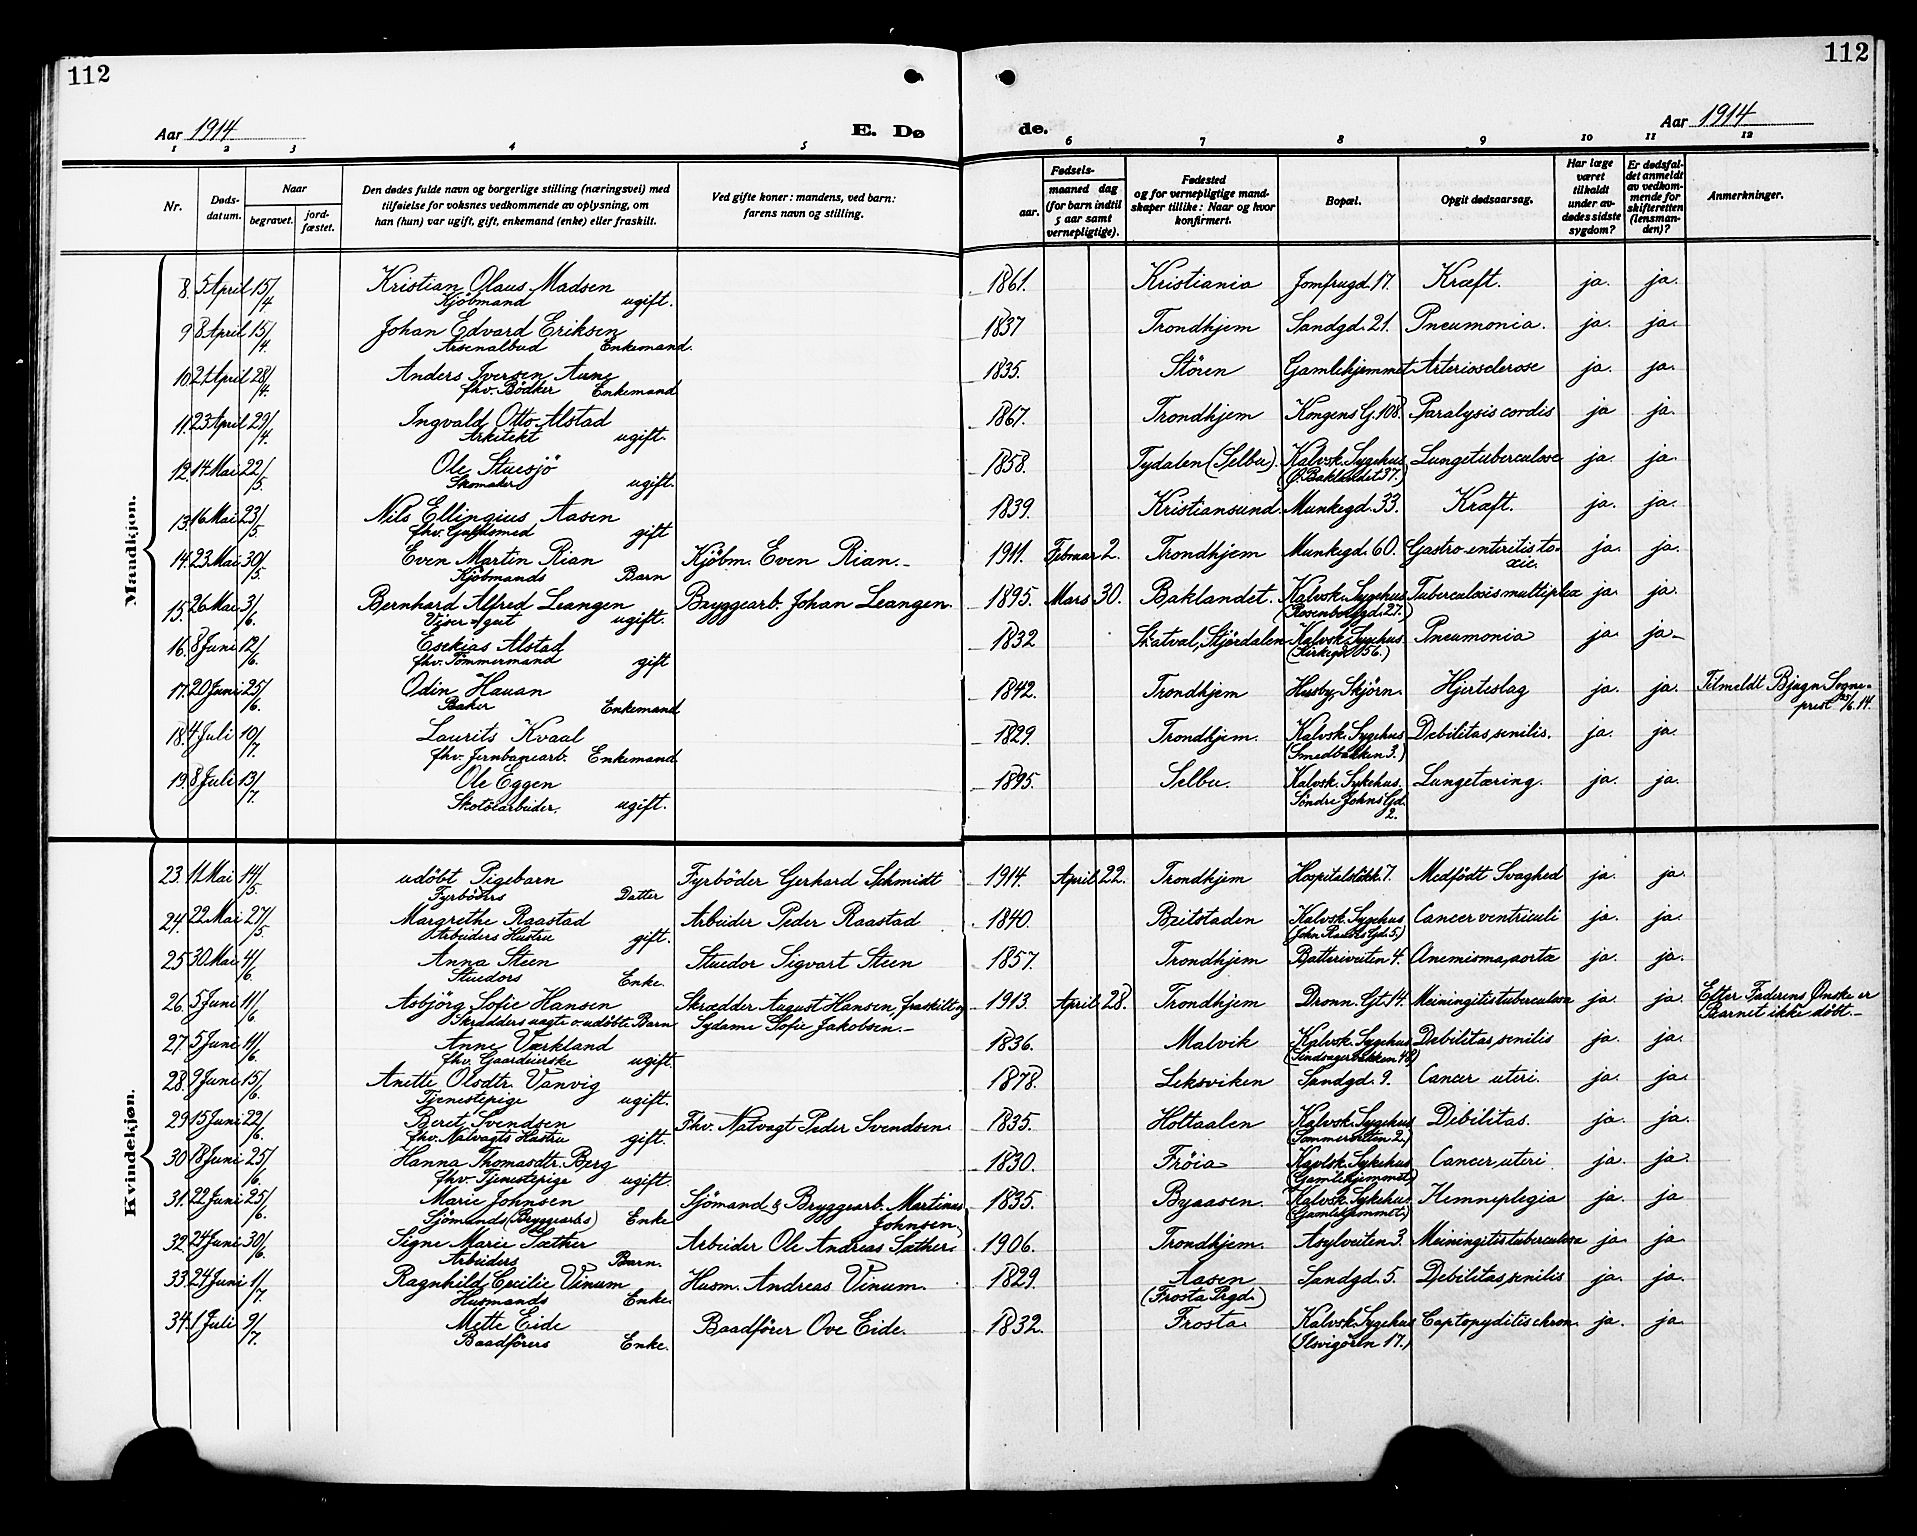 112
112
Aar 1914
E. Dø
de.
Aar 1914
1 2 3 4 5 6 7 8 9 10 11 12
Nr.
Døds-datum.
Naar
begravet.
jord-fæstet.
Den dødes fulde navn og borgerlige stilling (næringsvei) med
tilføielse for voksnes vedkommende av oplysning, om
han (hun) var ugift, gift, enkemand (enke) eller fraskilt.
Ved gifte koner: mandens, ved barn:
farens navn og stilling.
Fødsels-
aar.
maaned dag
(for barn indtil
5 aar samt
vernepligtige).
Fødested
og for vernepligtige mand-
skaper tillike: Naar og hvor
konfirmert.
Bopæl.
Opgit dødsaarsag.
Har læge
været
tilkaldt
under av-
dødes sidste
sygdom?
Er dødsfal-
det anmeldt
av vedkom-
mende for
skifteretten
(lensman-
den)?
Anmerkninger.
Mandkjøn.
8. 5 April 15/4 Kristian Olaus Madsen 1861. Kristiania Jomfrugd. 17. Kræft. ja. ja.
Kjöbmand ugift.
9 8 April 15/4. Johan Edvard Eriksen 1837 Trondhjem Sandgd. 21. Pneumonia. ja. ja.
Arsenalbud Enkemand.
10 21 April 28/4. Anders Iversen Aune 1835. Stören Gamlehjemmet Arteriosclerose ja. ja.
fhv. Bödker Enkemand
11. 23 April 29/4. Ingvald Otto Alstad 1867. Trondhjem Kongens G. 108. Paralysis cordis ja ja.
Arkitekt ugift.
12. 14 Mai 22/5. Ole Stuesjö 1858. Tydalen (Selbu). Kalvsk. Sygehus Lungetuberculose ja. ja.
Skomaker ugift. (Ö. Baklandet 37.)
13. 16 Mai 23/5. Nils Ellingius Aasen 1839. Kristiansund. Munkegd. 33. Kræft. ja. ja.
fhv. Guldsmed gift
14. 23 Mai 30/5. Even Martin Rian Kjöbm. Even Rian.- 1911. Februar 2. Trondhjem Munkegd. 60. Gastro-enteritis to-
Kjöbmands Barn xic. ja. ja.
15. 26 Mai 3/6. Bernhard Alfred Leangen Bryggearb. Johan Leangen. 1895. Mars 30. Baklandet. Kalvsk. Sygehus Tuberculosis multiplex ja. ja.
Viser-gut ugift. (Rosenborggd. 27.)
16. 8 Juni 12/6. Esekias Alstad 1832 Skatval, Stjördalen Kalvsk. Sygehus. Pneumonia ja. ja-
fhv. Tömmermand gift (Kirkegd. 56.)
17. 20 Juni 25/6. Odin Hauan 1842. Trondhjem Husby-Skjörn. Hjerteslag ja. ja. Tilmeldt Bjugn Sogne-
Baker Enkemand prest 25/6.14.
18. 4 Juli 10/7. Laurits Kvaal 1829. Trondhjem. Kalvsk. Sygehus Debilitas senilis. ja. ja.
fhv. Jernbanearb. Enkemand (Smedbakken 3.)
19. 8 Juli 13/7. Ole Eggen 1895. Selbu. Kalvsk. Sykehus. Lungetæring. ja. ja.
Skotöiarbeider. ugift. Söndre Johns Gd.
2.
Kvindekjøn.
23. 11 Mai 14/5 udöbt Pigebarn Fyrböder Gerhard Schmidt 1914. April 22. Trondhjem Hospitalslökk. 7. Medfödt Svaghed ja. ja.
Fyrböders Datter
24. 22 Mai 27/5 Margrethe Raastad Arbeider Peder Raastad 1840. Beitstaden Kalvsk. Sygehus Cancer ventriculi ja. ja.
Arbeiders Hustru gift.
25 30 Mai 4/6 Anna Steen Stuedor Sigvart Steen 1857. Trondhjem Batteriveiten 4. ja. ja.
Stuedors Enke.
26. 5 Juni 11/6 Asbjörg Sofie Hansen Skrædder August Hansen, fraskilt og 1913. April 28. Trondhjem Dronn. Gt. 14. Meiningitis tuberculosa ja. ja. Efter Faderens Ønske er
Skrædders uægte o. udöbte Barn Sydame Sofie Jakobsen.- Barnet ikke döbt.-
27. 5 Juni 11/6 Anne Værkland 1836. Malvik Kalvsk. Sygehus Debilitas senilis ja. ja.
fhv. Gaardeierske ugift.
28. 9 Juni 15/6. Anette Olsdtr. Vanvig 1878. Leksviken Sandgd. 9. Cancer uteri. ja. ja.
Tjenestepige ugift.
29 15 Juni 22/6. Beret Svendsen Fhv. Natvagt Peder Svendsen. 1835. Holtaalen Kalvsk. Sygehus Debilitas. ja. ja.
fhv. Natvagts Hustru gift.
30 18 Juni 25/6. Hanna Thomasdtr. Berg 1830. Fröia Kavlsk. Sykehus Cancer uteri ja. ja.
fhv. Tjenestepige ugift. (Gamlehjemmet)
31. 22 Juni 25/6. Marie Johnsen Sjömand & Bryggearb. Martinus 1835. Byaasen. Kalvsk. Sykehus. Hemneplegia ja. ja
Sjömands (Bryggearb.s) Enke Johnsen. (Gamlehjemmet.)
32. 24 Juni 30/6. Signe Marie Sæther Arbeider Ole Andreas Sæther. 1906. Trondhjem. Asylveiten 3. Meiningitis tuberculosa ja. ja.
Arbeiders Barn.
33. 24 Juni 1/7. Ragnhild Cecilie Vinum Husm. Andreas Vinum. 1829. Aasen Sandgd. 5. Debilitas senilis ja. ja.
Husmands Enke. (Frosta Prgd.)
34. 1 Juli 9/7. Mette Eide Baadförer Ove Eide. 1832. Frosta. Kalvsk. Sygehus chron. ja. ja.
Baadförers Enke. (Ilsvigören 17.)